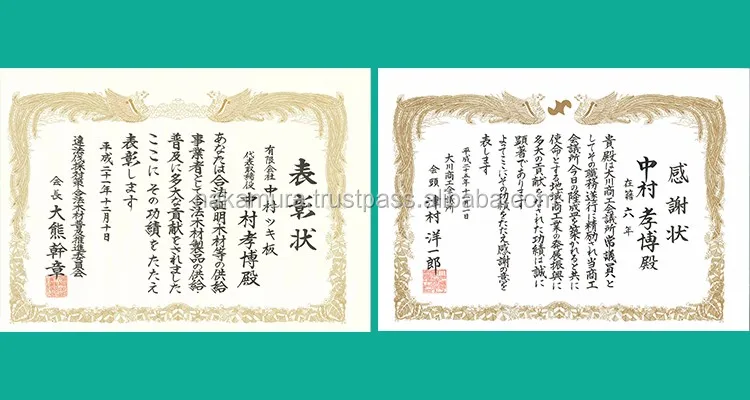 表彰状
有限会社 中村ツキ板
代表取締役 中村孝博殿
あなたは合法証明木材等の供給
事業者として合法木材製品の供給・
普及に多大な貢献をされました
ここに その功績をたたえ
表彰します
違法伐採対策・合法木材普及推進委員会
会長 大熊幹章
感謝状
在籍 六年
中村孝博殿
貴殿は大川商工会議所常議員と
してその職務遂行に精励され当商工
会議所今日の隆盛を築かれると共に
使命とする地域商工業の発展振興に
多大の貢献をされた功績は誠に
顕著であります
よってここにその功績をたたえ感謝の意を
表します
大川商工会議所
会頭 津村洋一郎
nakamura.trustpass.alibaba.com